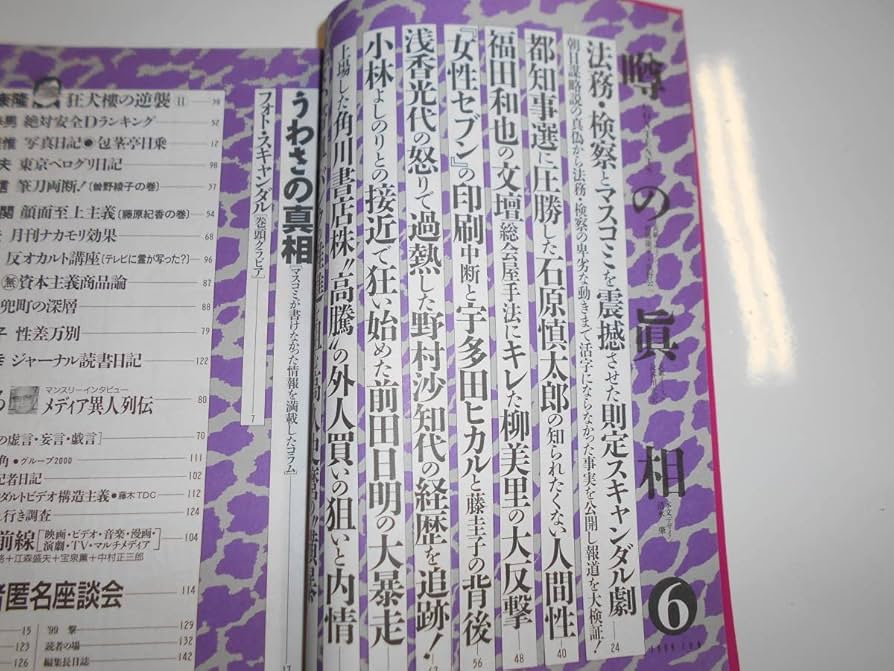 噂の眞相
6
法務・検察とマスコミを震撼させた則定スキャンダル劇
朝日謀略説の真偽から法務・検察の卑劣な動きまで活字にならなかった事実を公開し報道を大検証!
24
都知事選に圧勝した石原慎太郎の知られたくない人間性
40
福田和也の文壇総会屋手法にキレた柳美里の大反撃
48
『女性セブン』の印刷中断と宇多田ヒカルと藤圭子の背後
56
浅香光代の怒りで過熱した野村沙知代の経歴を追跡!
小林よしのりとの接近で狂い始めた前田日明の大暴走
上場した角川書店株〝高騰〟の外人買いの狙いと内情
うわさの真相[マスコミが書けなかった情報を満載したコラム]
17
フォト・スキャンダル[巻頭グラビア]
7
狂犬樓の逆襲II 38
絶対安全Dランキング 52
写真日記●包茎亭日乗 12
東京ペログリ日記 98
筆刀両断!(曽野綾子の巻) 37
顔面至上主義(藤原紀香の巻) 54
月刊ナカモリ効果 68
反オカルト講座(テレビに霊が写った?) 96
無資本主義商品論 87
兜町の深層 88
性差万別 79
ジャーナル読書日記 122
マンスリーインタビュー
メディア異人列伝 80
の虚言・妄言・戯言] 70
角●グループ2000 111
記者日記 102
ダルトビデオ構造主義●藤木TDC 112
行き調査 124
前線[映画・ビデオ・音楽・漫画・演劇・TV・マルチメディア] 104
+江森盛夫+宝泉薫+中村正三郎
匿名座談会 114
15 '99 撃 129
123 読者の場 132
126 編集長日誌 142